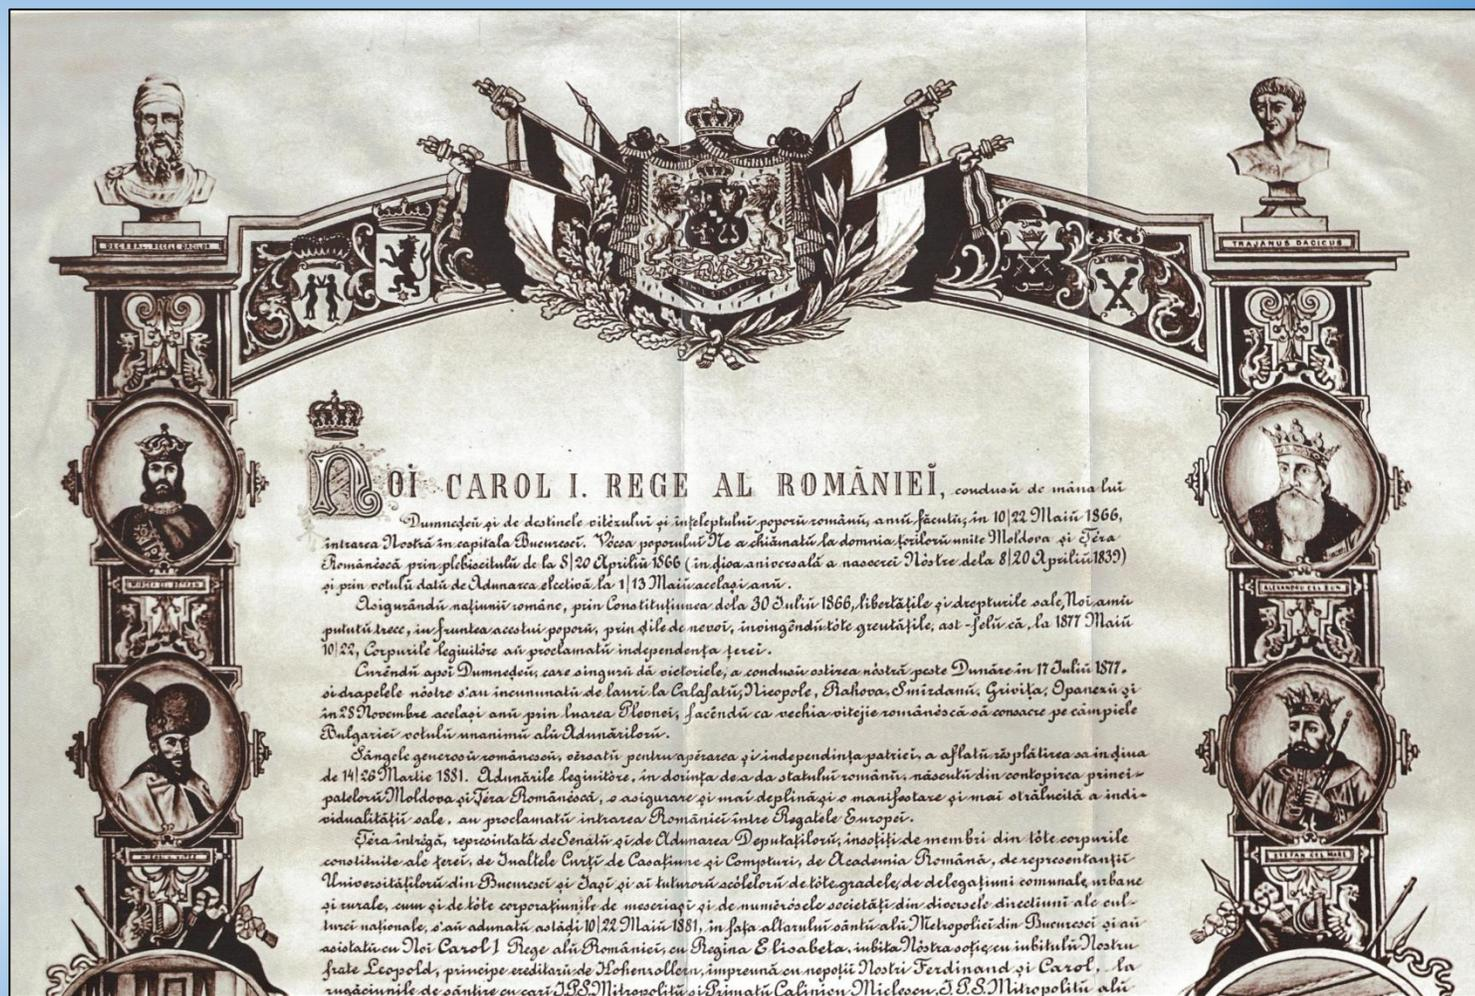 DECEBAL. REGELE DACILOR
TRAJANUS DACICUS
NIHIL SINE DEO
NOĬ CAROL I. REGE AL ROMÂNIEĬ, condusŭ de mâna lui
Dumneḑeŭ și de destinele vitézului și înțeleptului poporŭ românŭ, amŭ făcutŭ, în 10|22 Maiŭ 1866,
intrarea Nostră în capitala Bucurescĭ. Vócea poporului Ne a chiămatŭ la domnia țerilorŭ unite Moldova și Țéra
Românéscă prin plebiscitulŭ de la 8|20 Apriliŭ 1866 (în ḑioa aniversală a nascerei Nóstre de la 8|20 Apriliŭ 1839)
și prin votulŭ datŭ de Adunarea electivă la 1|13 Maiŭ același anŭ.
Asigurându națiunii române, prin Constituțiunea dela 30 Iuliŭ 1866, libertățile și drepturile sale, Noi amŭ
pututŭ trece, în fruntea acestui poporŭ, prin ḑile de nevoi, învingêndŭ tóte greutățile, ast-felŭ că, la 1877 Maiŭ
10|22, Corpurile legiuitóre aŭ proclamatŭ independența țerei.
Curêndŭ apoi Dumneḑeŭ, care singurŭ dă victoriele, a condusŭ ostirea nóstră peste Dunăre în 17 Iuliŭ 1877.
și drapelele nóstre s'aŭ încununatŭ de lauri la Calafatŭ, Nicopole, Rahova, Smîrdanŭ, Grivița, Opanezŭ și
în 28 Novembre același anŭ prin luarea Plevnei, făcêndŭ ca vechia vitejie românéscă să consacre pe câmpiele
Bulgariei votulŭ unanimŭ alŭ Adunărilorŭ.
Sângele generosŭ românescŭ, vĕrsatŭ pentru apĕrarea și independința patriei, a aflatŭ rĕsplătirea sa în ḑiua
de 14|26 Martie 1881. Adunările legiuitóre, în dorința de a da statului românŭ, născutŭ din contopirea princi-
patelorŭ Moldova și Țéra Românéscă, o asigurare și mai deplină și o manifestare și mai strălucită a indi-
vidualității sale, au proclamatŭ intrarea României între Regatele Europei.
Țéra întrégă, represintată de Senatŭ și de Adunarea Deputațilorŭ, însoțiți de membri din tóte corpurile
constituite ale țerei, de Inaltele Curți de Casațiune și Compturi, de Academia Română, de representanții
Universitățilorŭ din Bucurescĭ și Iași și ai tuturorŭ scólelorŭ de tóte gradele, de delegațiuni comunale, urbane
și rurale, cum și de tóte corporațiunile de meseriași și de numérósele societăți din diversele direcțiuni ale cul-
turei naționale, s'aŭ adunatŭ astăḑi 10|22 Maiŭ 1881, în fața altarului sântŭ alŭ Metropoliei din Bucurescĭ și aŭ
asistatŭ cu Noi Carol I Rege alŭ României, cu Regina Elisabeta, iubita Nóstra soție, cu iubitulŭ Nostru
frate Leopold, principe ereditarŭ de Hohenzollern, împreună cu nepoții Nostri Ferdinand și Carol, la
rugăciunile de sânțire cu cari I.P.S. Mitropolitŭ și Primatŭ Calinicu Miclescu, I.P.S. Mitropolitŭ alŭ
MIRCEA CEL BETRAN
ALEXANDRU CEL BUN
MICHAIU VITEZ
ȘTEFAN CEL MARE